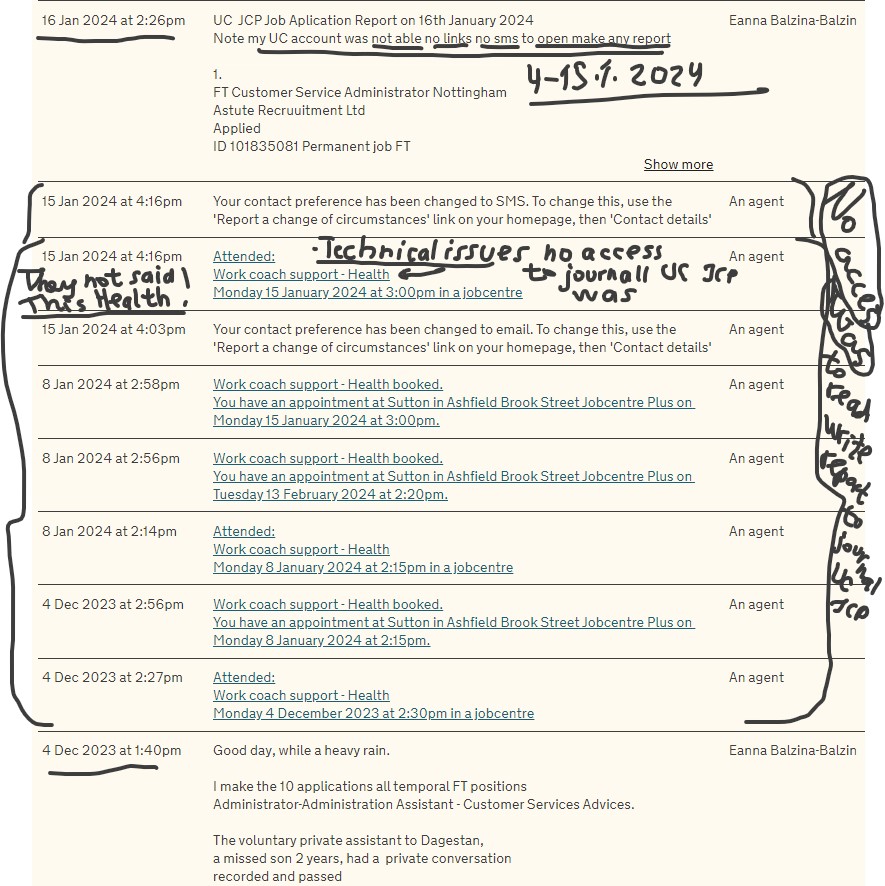 16 Jan 2024 at 2:26pm
UC  JCP Job Aplication Report on 16th January 2024
Eanna Balzina-Balzin
Note my UC account was not able no links no sms to open make any report
4-15.1.2024
1.
FT Customer Service Administrator Nottingham
Astute Recruuitment Ltd
Applied
ID 101835081 Permanent job FT
Show more
15 Jan 2024 at 4:16pm
Your contact preference has been changed to SMS. To change this, use the
'Report a change of circumstances' link on your homepage, then 'Contact details'
An agent
15 Jan 2024 at 4:16pm
Attended:
Work coach support - Health
Monday 15 January 2024 at 3:00pm in a jobcentre
An agent
- Technical issues no access
to journall UC JCP
was
They not said
This Health!
15 Jan 2024 at 4:03pm
Your contact preference has been changed to email. To change this, use the
'Report a change of circumstances' link on your homepage, then 'Contact details'
An agent
8 Jan 2024 at 2:58pm
Work coach support - Health booked.
You have an appointment at Sutton in Ashfield Brook Street Jobcentre Plus on
Monday 15 January 2024 at 3:00pm.
An agent
8 Jan 2024 at 2:56pm
Work coach support - Health booked.
You have an appointment at Sutton in Ashfield Brook Street Jobcentre Plus on
Tuesday 13 February 2024 at 2:20pm.
An agent
8 Jan 2024 at 2:14pm
Attended:
Work coach support - Health
Monday 8 January 2024 at 2:15pm in a jobcentre
An agent
4 Dec 2023 at 2:56pm
Work coach support - Health booked.
You have an appointment at Sutton in Ashfield Brook Street Jobcentre Plus on
Monday 8 January 2024 at 2:15pm.
An agent
4 Dec 2023 at 2:27pm
Attended:
Work coach support - Health
Monday 4 December 2023 at 2:30pm in a jobcentre
An agent
No
access
was
to
read
write
report
to
jour
nal
UC
JCP
4 Dec 2023 at 1:40pm
Good day, while a heavy rain.
Eanna Balzina-Balzin
I make the 10 applications all temporal FT positions
Administrator-Administration Assistant - Customer Services Advices.
The voluntary private assistant to Dagestan,
a missed son 2 years, had a  private conversation
recorded and passed